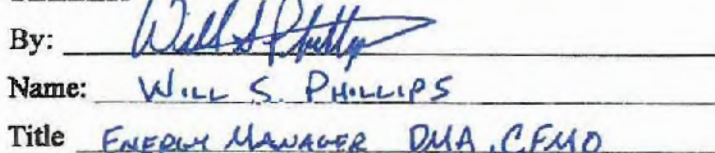 By: Will S Phillips
Name: WILL S. PHILLIPS
Title ENERGY MANAGER DMA, CFMO